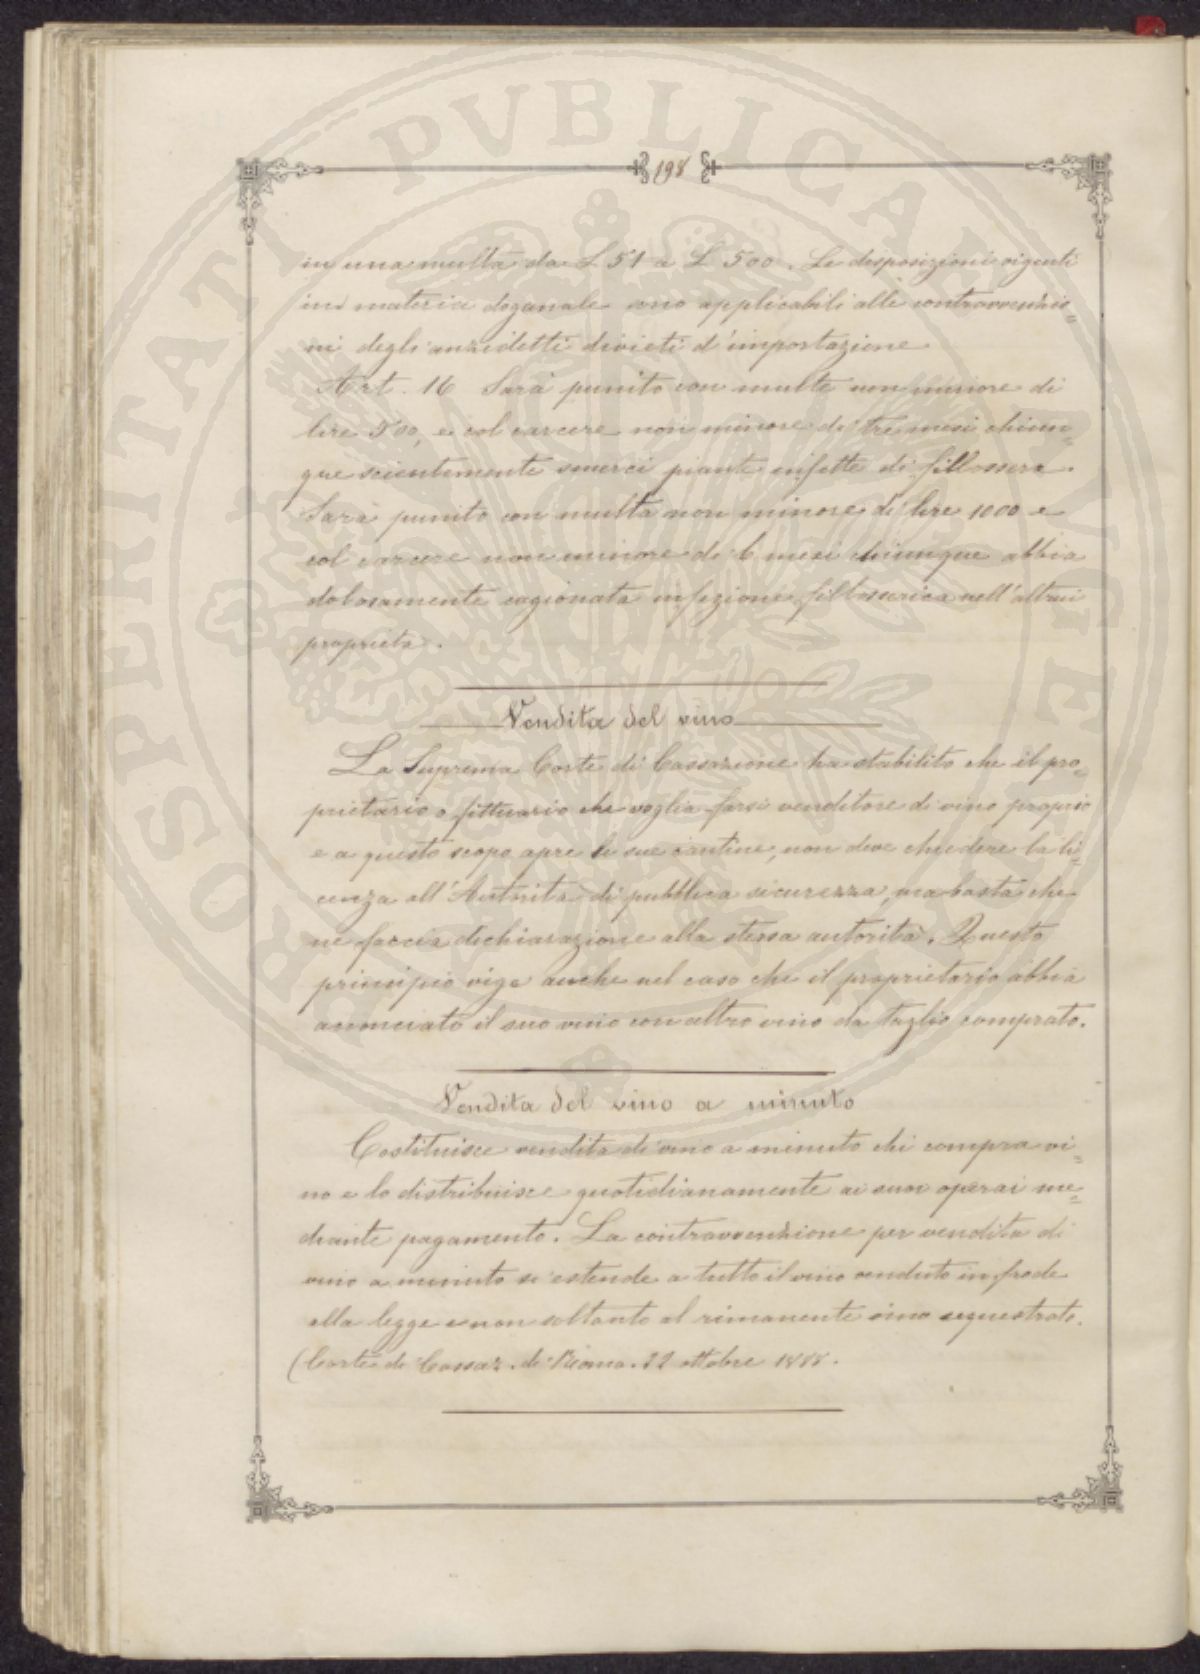 198
in una multa da £ 51 a £ 500. Le disposizioni vigenti
in materia doganale sono applicabili alle contravvenzio=
ni degli anzidetti divieti d'importazione
Art. 16 Sarà punito con multa non minore di
lire 500, e col carcere non minore di tre mesi chiun=
que scientemente smerci piante infette di fillossera.
Sarà punito con multa non minore di lire 1000 e
col carcere non minore di 6 mesi chiunque abbia
dolosamente cagionata infezione fillosserica nell'altrui
proprietà.
Vendita del vino
La Suprema Corte di Cassazione ha stabilito che il pro=
prietario o fittuario che voglia farsi venditore di vino proprio
e a questo scopo apre le sue cantine, non deve chiedere la li=
cenza all'Autorità di pubblica sicurezza, ma basta che
ne faccia dichiarazione alla stessa autorità. Questo
principio vige anche nel caso che il proprietario abbia
acconciato il suo vino con altro vino da taglio comprato.
Vendita del vino a minuto
Costituisce vendita di vino a minuto chi compra vi=
no e lo distribuisce quotidianamente ai suoi operai me=
diante pagamento. La contravvenzione per vendita di
vino a minuto si estende a tutto il vino venduto in frode
alla legge e non soltanto al rimanente vino sequestrato.
(Corte di Cassaz. di Roma. 22 ottobre 1888.
PROSPERITATI PVBLICAE AVGENDAE